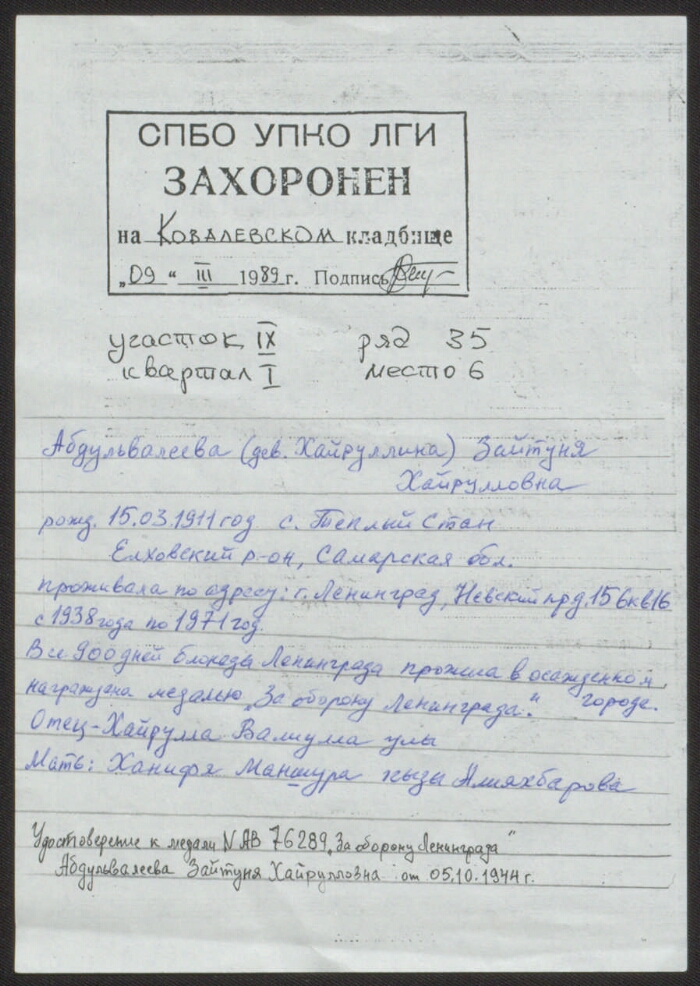 СПБО УПКО ЛГИ
ЗАХОРОНЕН
на Ковалевском кладбище
„09" III 1989 г. Подпись
участок IX ряд 35
квартал I место 6
Абдульвалеева (дев. Хайруллина) Зайтуня
Хайрулловна
рожд. 15.03.1911 год с. Теплый Стан
Елховский р-он, Самарская обл.
проживала по адресу: г. Ленинград, Невский пр. д. 156 кв 16
с 1938 года по 1971 год.
Все 900 дней блокады Ленинграда прожила в осажденном
награждена медалью „За оборону Ленинграда". городе.
Отец-Хайрулла Валиулла улы
Мать: Ханифя Маншура кызы Алиякбарова
Удостоверение к медали N АВ 76289 „За оборону Ленинграда"
Абдульвалеева Зайтуня Хайрулловна от 05.10.1944 г.